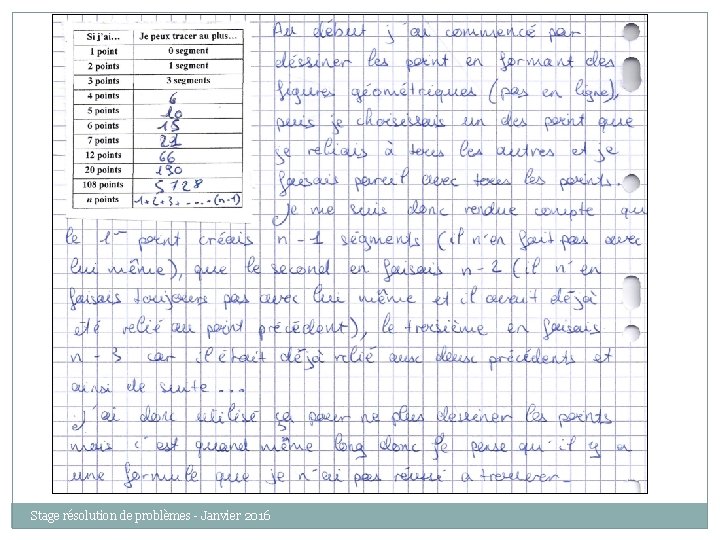 Si j'ai... Je peux tracer au plus...
1 point 0 segment
2 points 1 segment
3 points 3 segments
4 points 6
5 points 10
6 points 15
7 points 21
12 points 66
20 points 190
108 points 5728
n points 1+2+3+.....(n-1)
Au début j'ai commencé par
déssiner les point en formant des
figures géométriques (pas en ligne),
puis je choisessais un des point que
je reliais à tous les autres et je
faisais pareil avec tous les points.
Je me suis donc rendue compte que
le 1er point créais n-1 ségments (il n'en fait pas avec
lui même), que le second en faisais n-2 (il n'en
faisais toujours pas avec lui même et il avait déjà
été relié au point précédent), le troisième en faisais
n-3 car il était déjà relié aux deux précédents et
ainsi de suite...
j'ai donc utilisé ça pour ne plus dessiner les points
mais c'est quand même long donc je pense qu'il y a
une formule que je n'ai pas réussi a trouver.
Stage résolution de problèmes - Janvier 2016